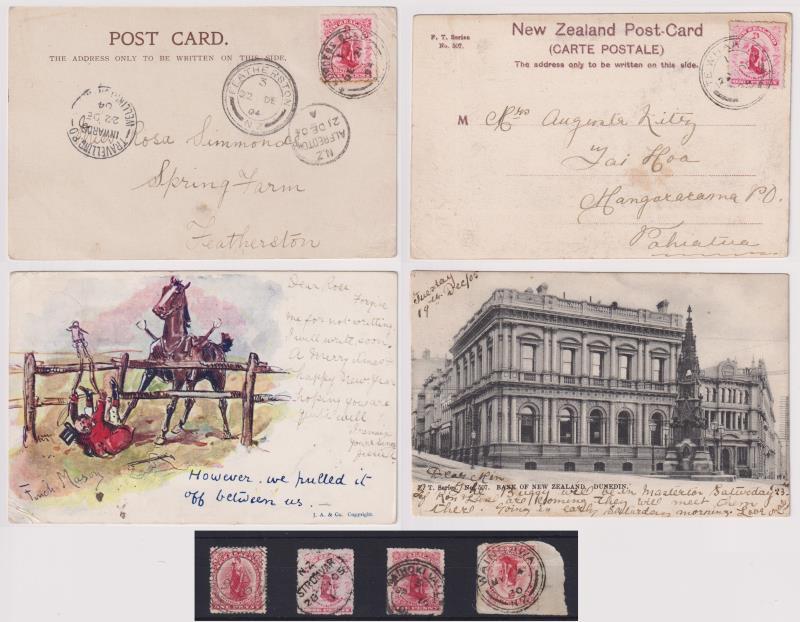 POST CARD.
THE ADDRESS ONLY TO BE WRITTEN ON THIS SIDE.
FEATHERSTON
3
22 DE
04
N.Z
TRAVELLING P.O
INWARDS
22 DE
04
WELLINGTON
N.Z
ALFREDTON
21 DE 04
A
Rosa Simmonds
Spring Farm
Featherston
P. T. Series
No. 507.
New Zealand Post-Card
(CARTE POSTALE)
The address only to be written on this side.
M Mrs Augusta
Tai Hoa
Mangaramarama P.O.
Pahiatua
Dear Rose
Forgive
me for not writing
I will write soon
A Merry Xmas
happy New Year
hoping you are
quite well
Jessie
Finch Mason
However. we pulled it
off between us —
J. A. & Co. Copyright.
Tuesday
19th Dec/05
P. T. Series. No. 507. BANK OF NEW ZEALAND, DUNEDIN.
Buggy will be in Masterton Saturday 23
are coming they will meet
there going in early Saturday morning. Love
ONE PENNY
N.Z
STRONVAR